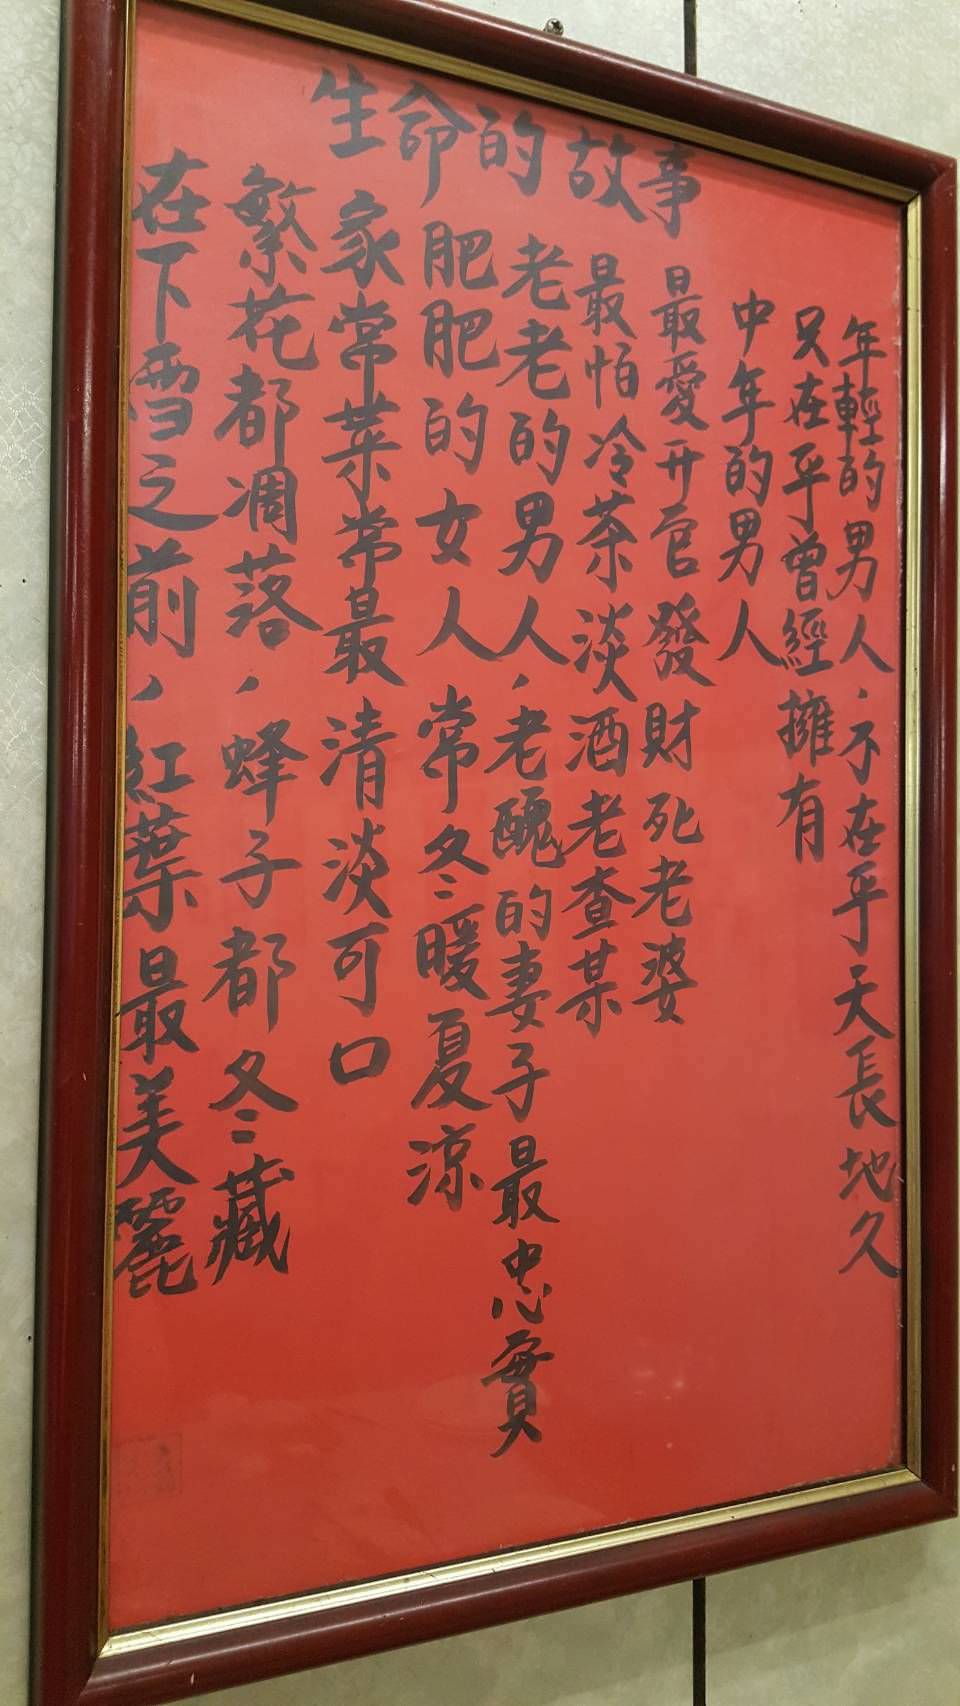 生命的故事
年輕的男人，不在乎天長地久
只在乎曾經擁有
中年的男人
最愛升官發財死老婆
最怕冷茶淡酒老查某
老老的男人，老醜的妻子最忠實
肥肥的女人常冬暖夏涼
家常菜常最清淡可口
繁花都凋落，蜂子都冬藏
在下雪之前，紅葉最美麗